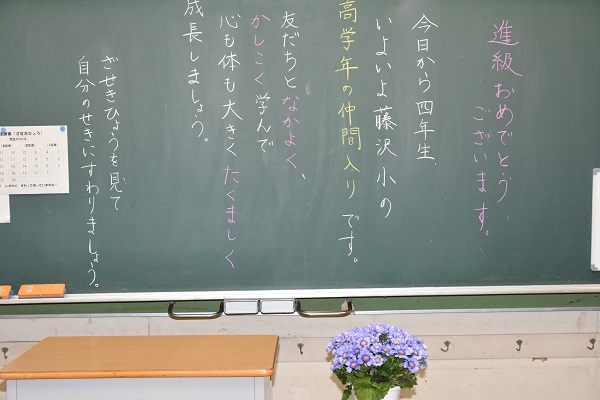 進級おめでとう
ございます。
今日から四年生、
いよいよ藤沢小の
高学年の仲間入りです。
友だちとなかよく、
かしこく学んで
心も体も大きくたくましく
成長しましょう。
ざせきひょうを見て
自分のせきにすわりましょう。